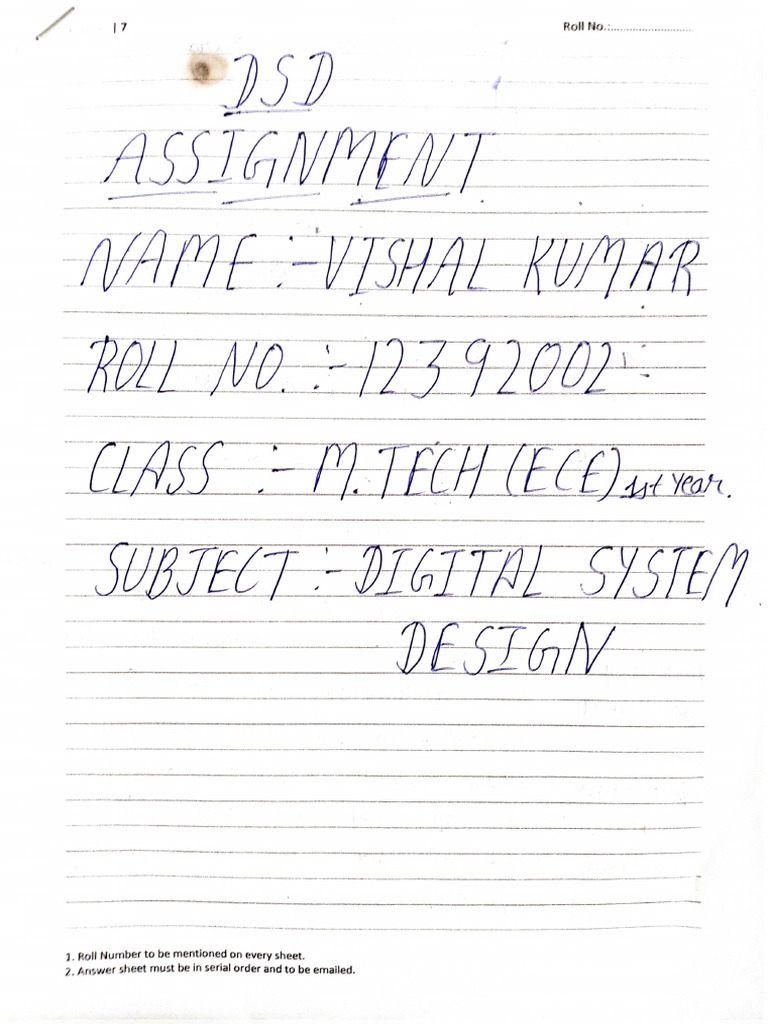 | 7
Roll No.:............................
DSD
ASSIGNMENT
NAME :- VISHAL KUMAR
ROLL NO. :- 12392002
CLASS :- M.TECH (ECE) 1st Year.
SUBJECT :- DIGITAL SYSTEM
DESIGN
1. Roll Number to be mentioned on every sheet.
2. Answer sheet must be in serial order and to be emailed.